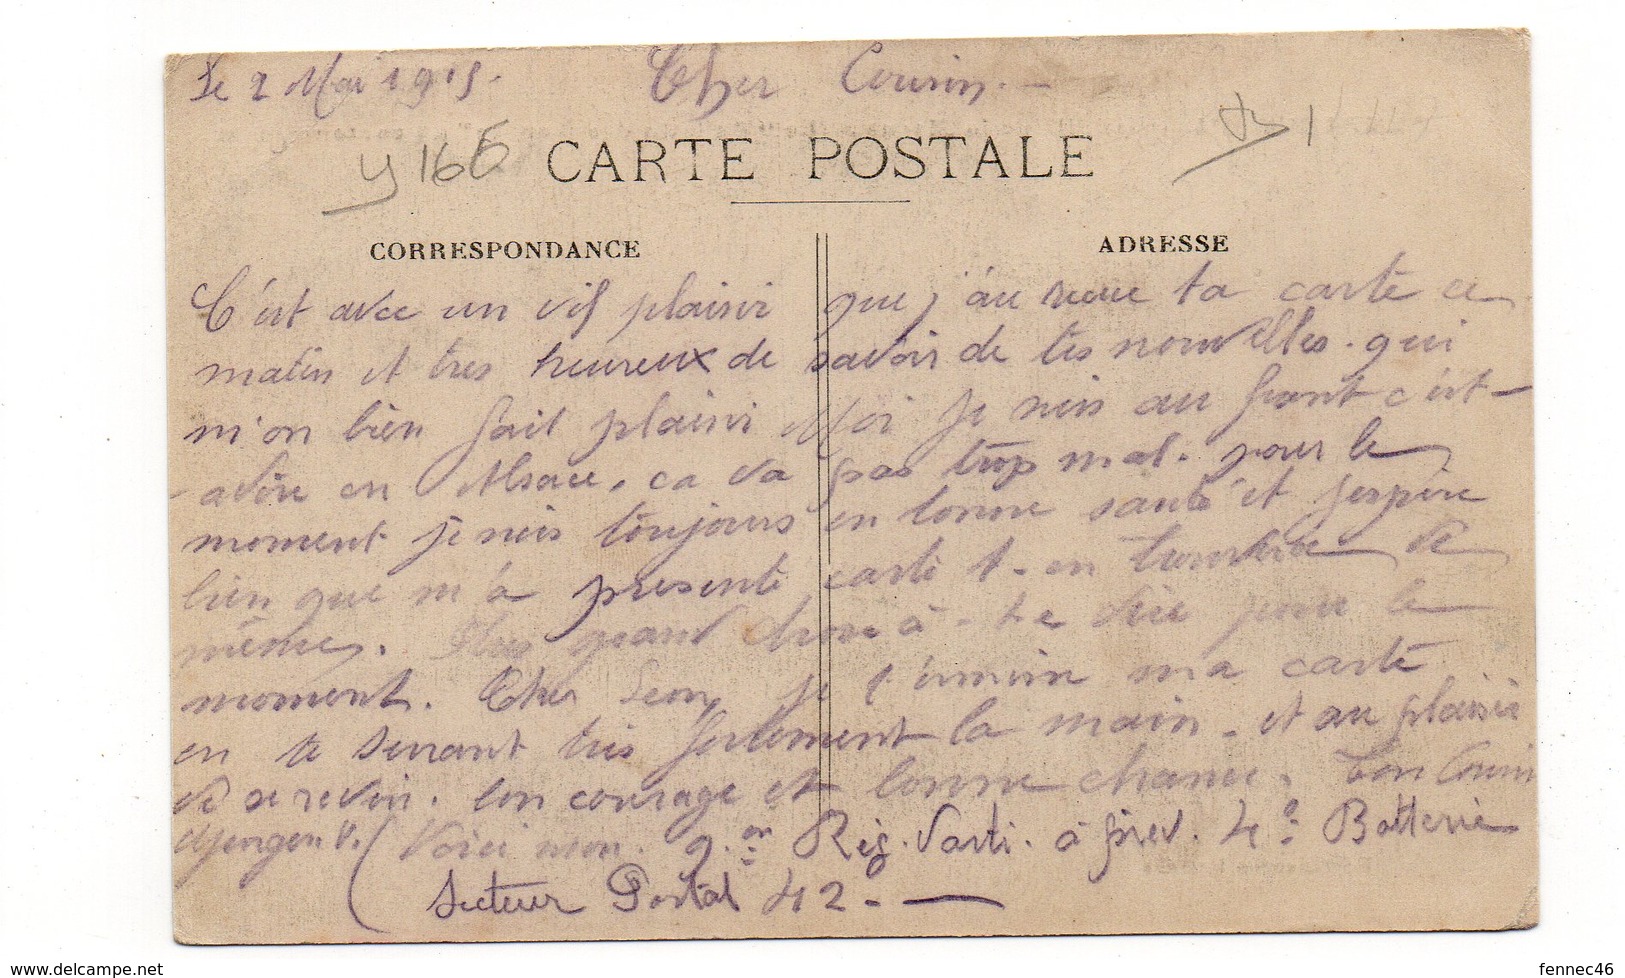 Le 2 Mai 1915. Cher Cousin. -
y 166
CARTE POSTALE
CORRESPONDANCE
ADRESSE
C'est avec un vif plaisir que j'au recue ta carte ce
matin et tres heureux de savoir de tes nouvelles. qui
m'on bien fait plaisir Moi je suis au front c'est-
adire en Alsace, ca va pas trop mal. pour le
moment je suis toujours en bonne santé et j'espère
bien que m'a presente carte t-en de
même. Plus grand chose à-te dire pour le
moment. Cher Leon, je termine ma carte
en te serrant tres fortement la main. et au plaisir
de se revoir. bon courage et bonne chance. ton Cousin
(Voici mon. Rég. d'arti. à pied. 4e Batterie
Secteur Postal 42. —
fennec46
https://www.delcampe.net